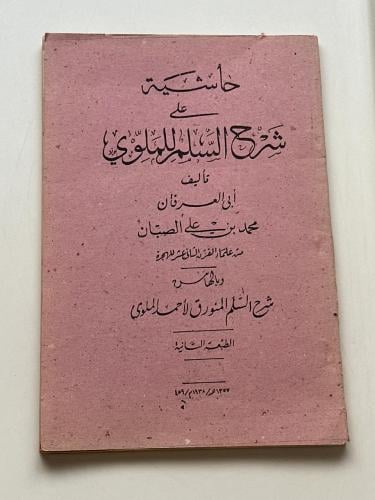 حاشية
على
شرح السلم للملوي
تأليف
أبى العرفان
محمد بن على الصبان
من علماء القرن الثانى عشر للهجرة
وبالهامش
شرح السلم المنورق لأحمد الملوى
الطبعة الثانية
١٣٥٧ هـ / ١٩٣٨ م / ٤٥٩